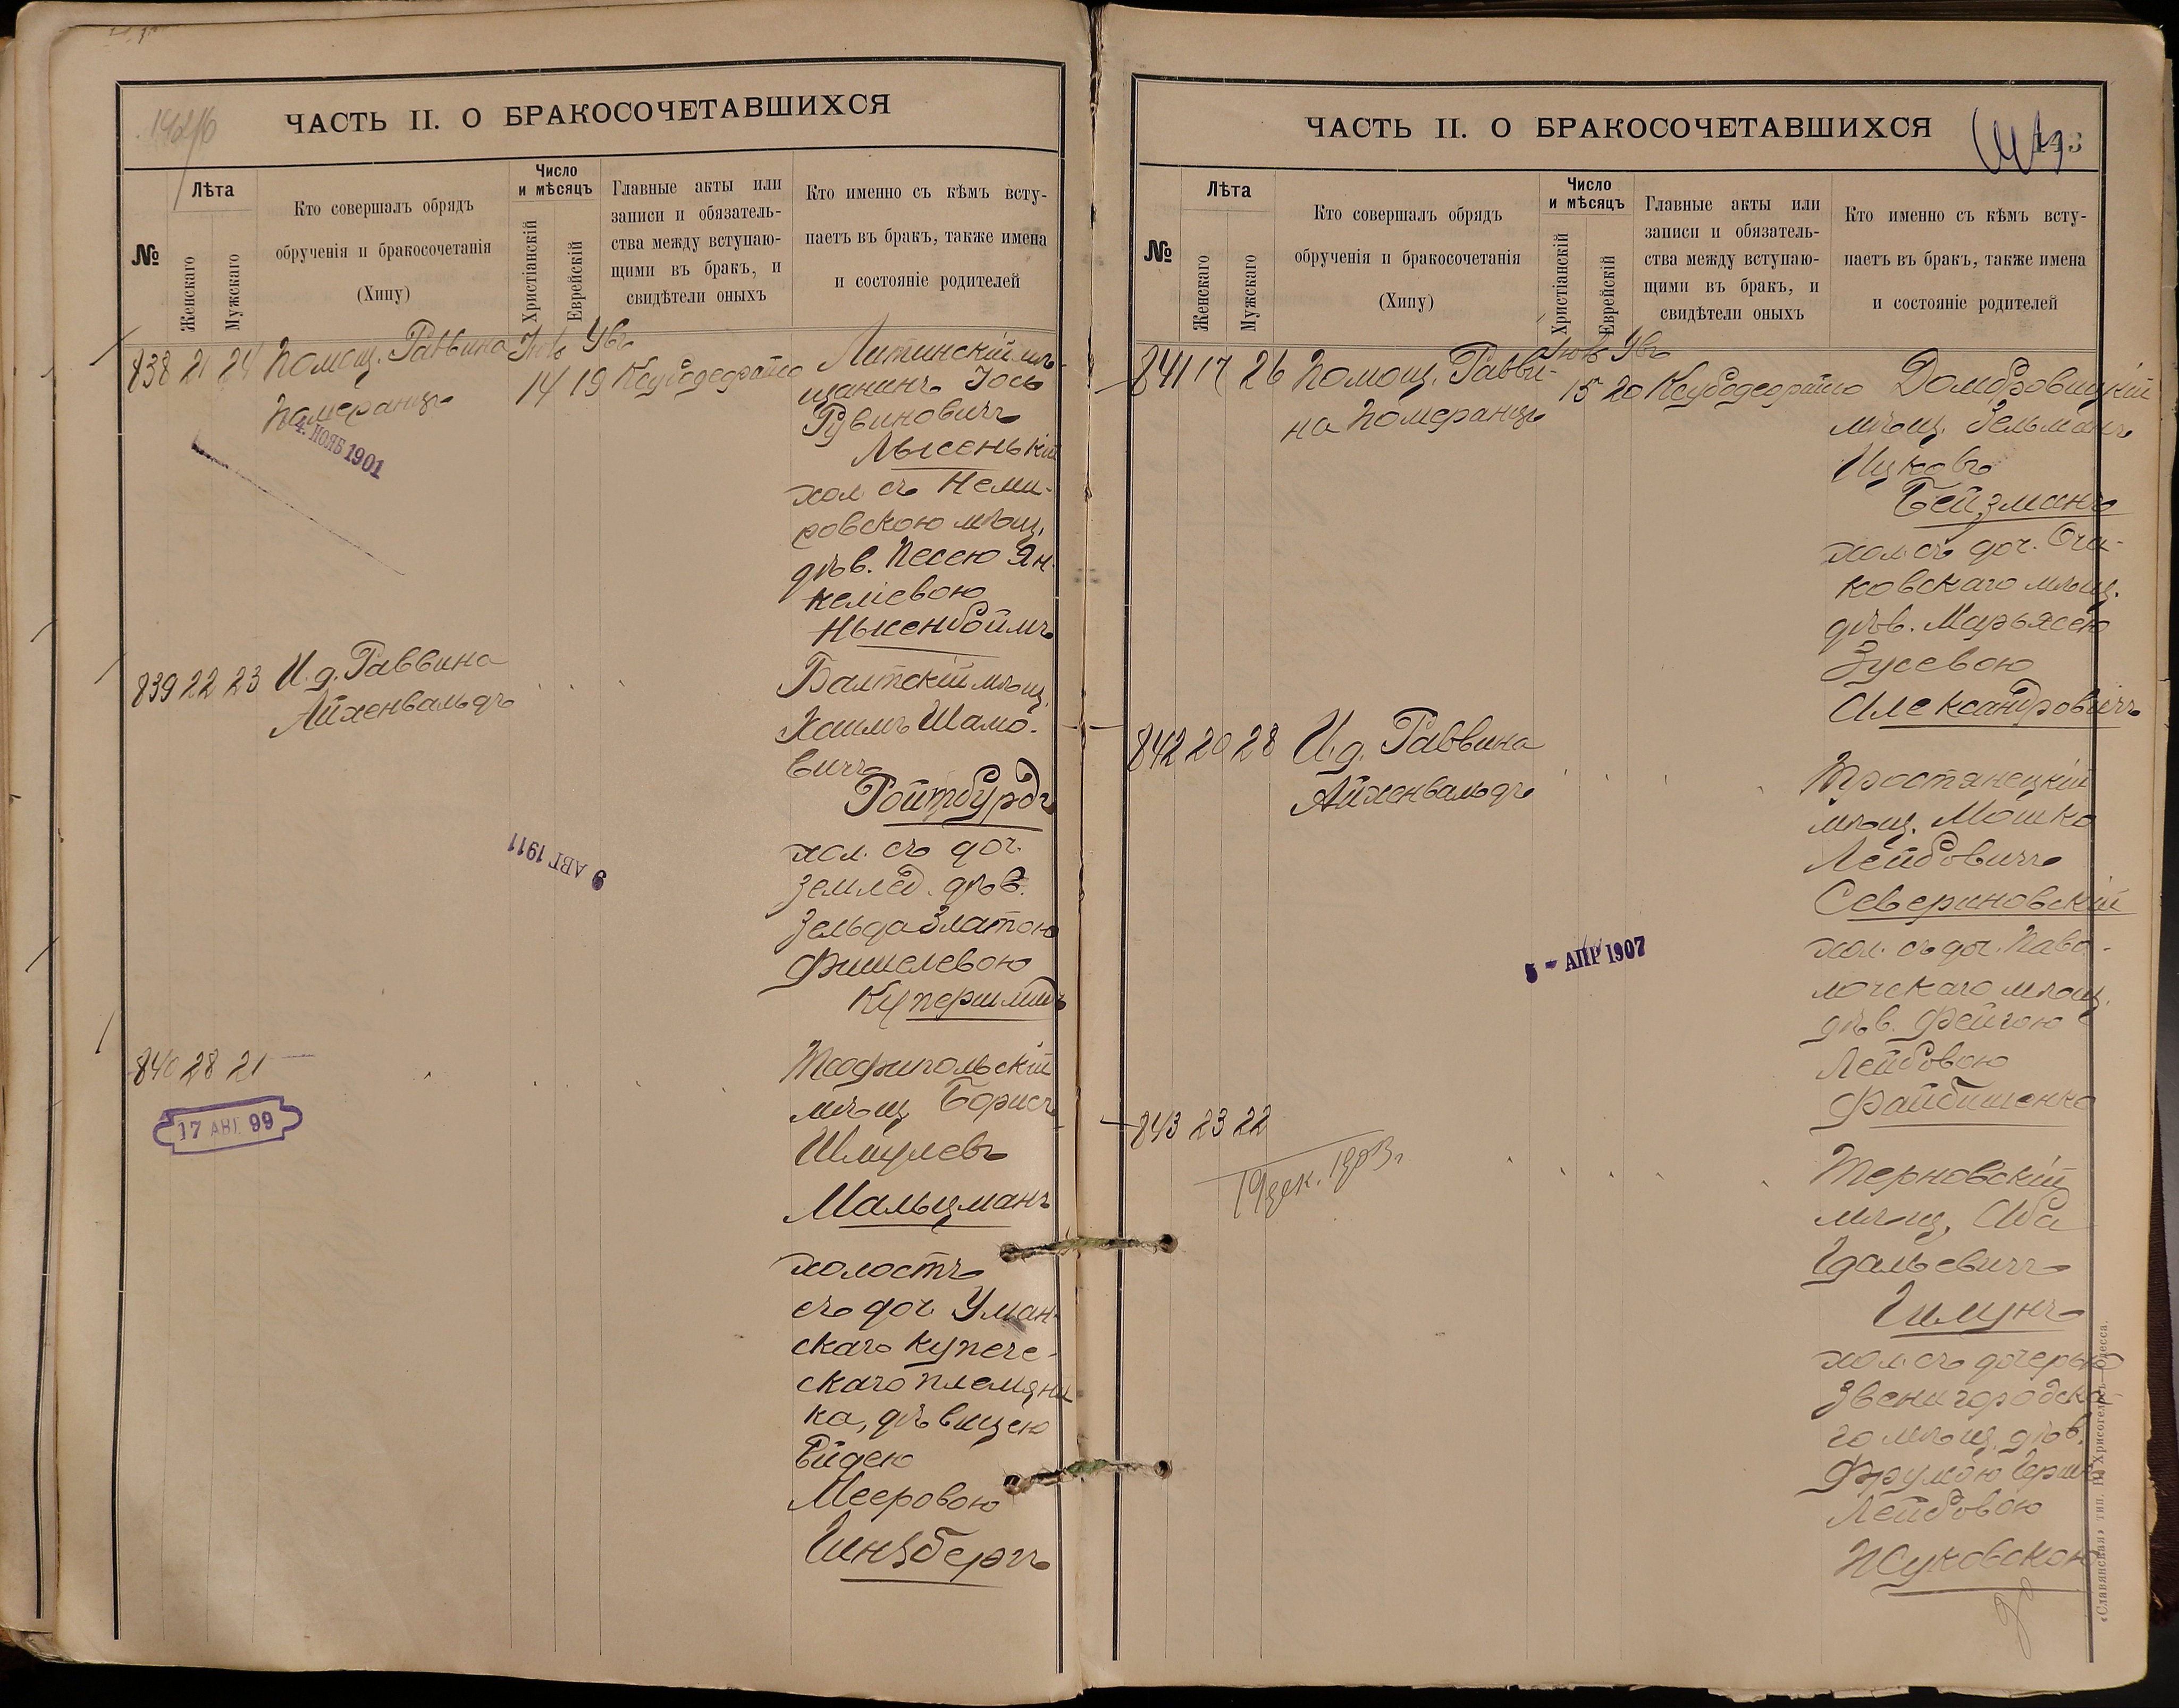 ЧАСТЬ II. О БРАКОСОЧЕТАВШИХСЯ
№
Лѣта
Женскаго
Мужскаго
Кто совершалъ обрядъ
обрученія и бракосочетанія
(Хипу)
Число
и мѣсяцъ
Христіанскій
Еврейскій
Главные акты или
записи и обязатель-
ства между вступаю-
щими въ бракъ, и
свидѣтели оныхъ
Кто именно съ кѣмъ всту-
паетъ въ бракъ, также имена
и состояніе родителей
838 21 24 Помощ. Раввина
Померанцъ
14 19
4. НОЯБ 1901
Литинскій мѣ-
щанинъ Іось
Рувиновичъ
Лысенькій
хол. съ Неми-
ровскою мѣщ.
дѣв. Песею Ян-
келіевою
Нысенбоймъ
839 22 23 И. д. Раввина
Айхенвальдъ
Балтскій мѣщ.
Хаимъ Шамо-
вичъ
Ройтбурдъ
хол. съ доч.
землед. дѣв.
Зельда Златою
Фишелевою
Купершмидъ
9 АВГ 1911
840 28 21
17 АВГ. 99
Теофипольскій
мѣщ. Борисъ
Шмулевъ
Мальцманъ
холостъ
съ доч. Уман-
скаго купече-
скаго племянни
ка, дѣвицею
Ейдею
Мееровою
Гинзбергъ
ЧАСТЬ II. О БРАКОСОЧЕТАВШИХСЯ
143
№
Лѣта
Женскаго
Мужскаго
Кто совершалъ обрядъ
обрученія и бракосочетанія
(Хипу)
Число
и мѣсяцъ
Христіанскій
Еврейскій
Главные акты или
записи и обязатель-
ства между вступаю-
щими въ бракъ, и
свидѣтели оныхъ
Кто именно съ кѣмъ всту-
паетъ въ бракъ, также имена
и состояніе родителей
841 17 26 Помощ. Равви-
на Померанцъ
15 20
Домбровицкій
мѣщ. Зельманъ
Ицковъ
Бейзманъ
хол. съ доч. Оча-
ковскаго мѣщ.
дѣв. Марьясею
Зусевою
Александровичъ
842 20 28 И. д. Раввина
Айхенвальдъ
Тростянецкій
мѣщ. Мошко
Лейбовичъ
Севериновскій
хол. съ доч. Паво-
лочскаго мѣщ.
дѣв. Фейгою
Лейбовою
Файбишенко
5 - АПР 1907
843 23 22
19 дек. 1903 г.
Терновскій
мѣщ. Аба
Гдальевичъ
Гимунъ
хол. съ дочерью
Звенигородска-
го мѣщ. дѣв.
Фрумою Герш
Лейбовою
Жуковскою
«Славянская» тип. Н. Хрисогелосъ—Одесса.